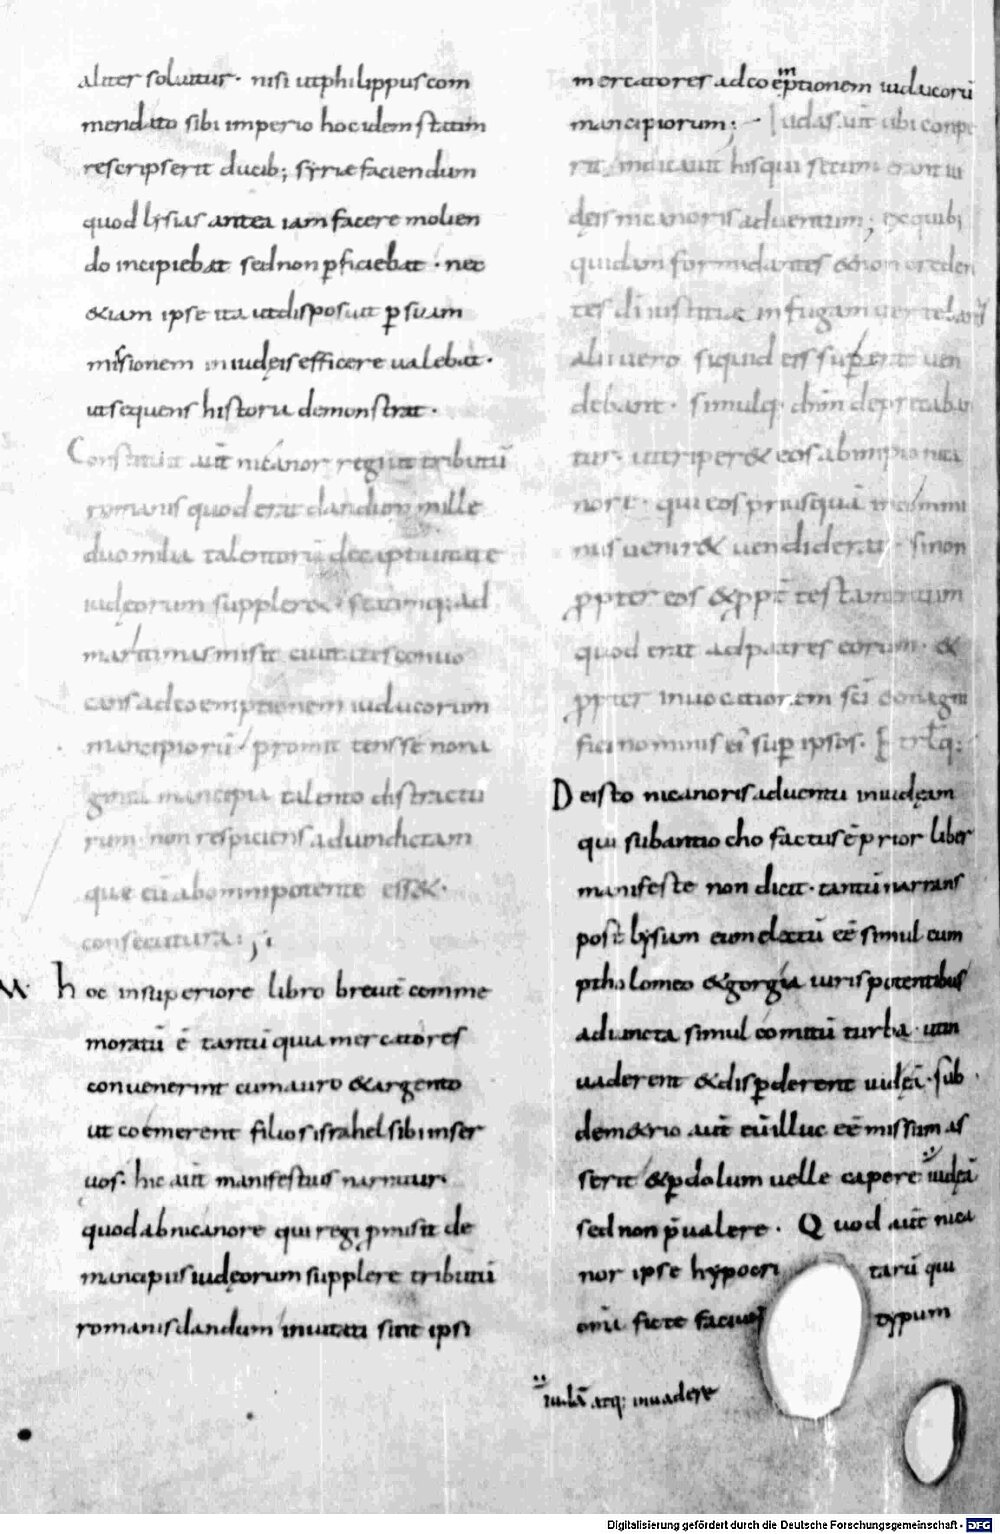 aliter soluitur· nisi utphilippus com
mendato sibi imperio hoc idem statim
rescripserit ducib; syriæ faciendum
quod lysias antea iam facere molien
do incipiebat sed non ꝑficiebat · nec
&iam ipse ita ut disposuit ꝑ suam
missionem in iudęis efficere ualebat·
ut sequens historia demonstrat·
Constituit aut̄ nicánor regi ut tributū
romanis quod erat dandum mille
duo milia talentorū de captiuitate
iudęorum suppler&· statimq; ad
maritimas misit ciuitates conuo
cans ad coemptionem iudaicorum
mancipiorū· promittens se nona
ginta mancipia talento distractu
rum· non respiciens ad uindictam
quæ eū ab omnipotente ess&·
consecutura;
hoc in superiore libro breuit̄ comme
moratū ē tantū quia mercatores
conuenerint cum auro & argento
ut coemerent filios israhel sibi in ser
uos· hic aut̄ manifestius narratur·
quod ab nicanore qui regi p̄misit de
mancipiis iudęorum supplere tributū
romanis dandum inuitati sint ipsi
mercatores ad coemptionem iudaicorū
mancipiorum; Iudas aut̄ ubi conpe
rit indicauit his qui secum erant iu
dęis nicanoris aduentum; ex quib;
quidam formidantes & non creden
tes di iustitiæ in fugam uertebant̄
alii uero siquid eis suꝑerat uen
debant· simulq; dn̄m deprecaban
tur· ut eriper& eos ab impio nica
nore· qui eos priusquā comminus
nus uenir& uendiderat· si non
propter eos & ppt̄ testamentum
quod erat ad patres eorum· &
propter inuocationem sc̄i & magni
fici nominis ei' suꝑ ipsos·
De isto nicanoris aduentu in iudęam
qui sub antiocho factus ē prior liber
manifeste non dicit· tantū narrans
post lysiam eum electū eē simul cum
ptholomeo & gorgia uiris potentibus
adiuncta simul comitū turba· ut in
uaderent & disꝑderent iudęā· sub
dem&rio aut̄ eū illuc eē missum as
serit & ꝑ dolum uelle capere iudęā
sed non p̄ualere· Quod aut̄ nica
nor ipse hypocritarū qui
omīa ficte faciunt typum
iudā atq; inuadere
Digitalisierung gefördert durch die Deutsche Forschungsgemeinschaft - DFG